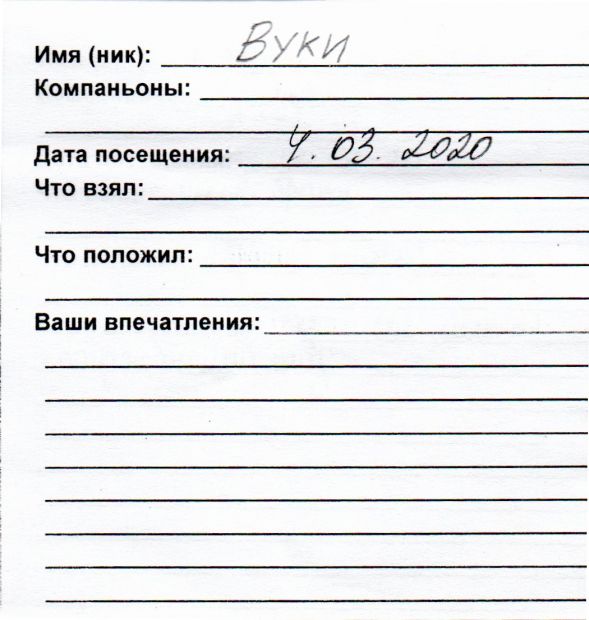 Имя (ник): Вуки
Компаньоны:
Дата посещения: 4.03.2020
Что взял:
Что положил:
Ваши впечатления: